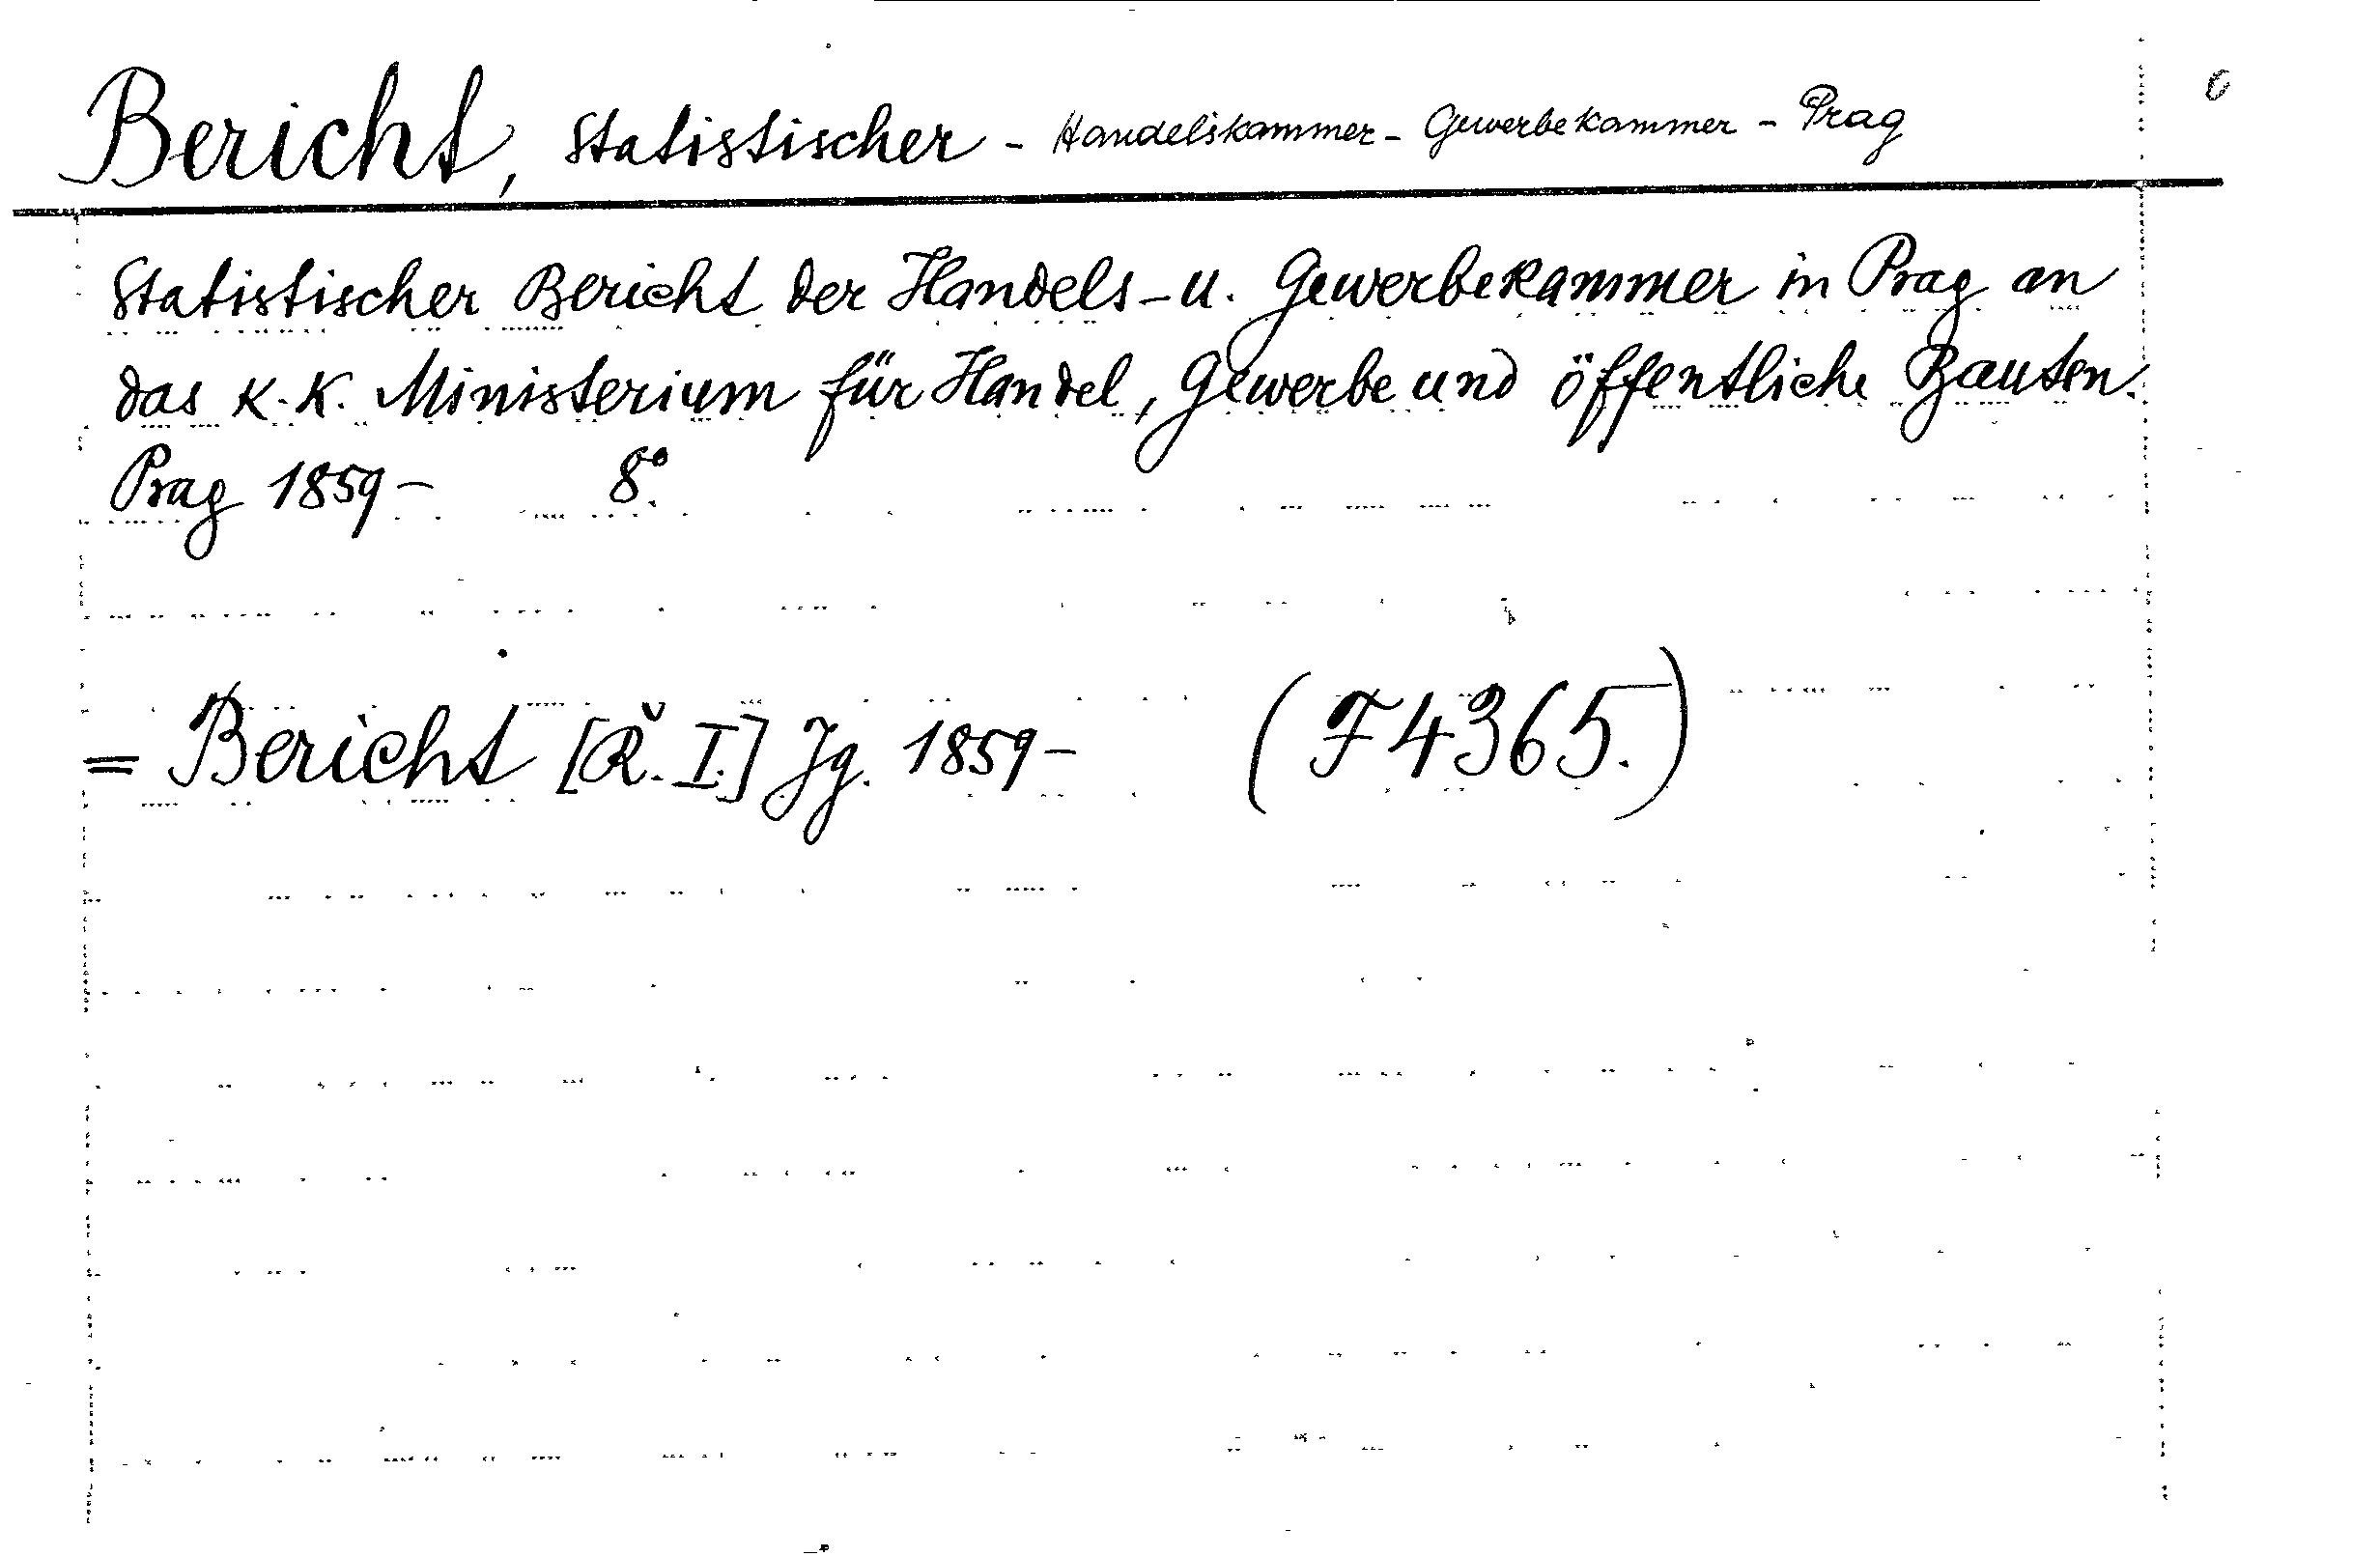 Bericht, Statistischer - Handelskammer - Gewerbekammer - Prag
Statistischer Bericht der Handels- u. Gewerbekammer in Prag an
das k. k. Ministerium für Handel, Gewerbe und öffentliche Bauten.
Prag 1859- 8°.
= Bericht [Ř. I.] Jg. 1859- (F 4365.)